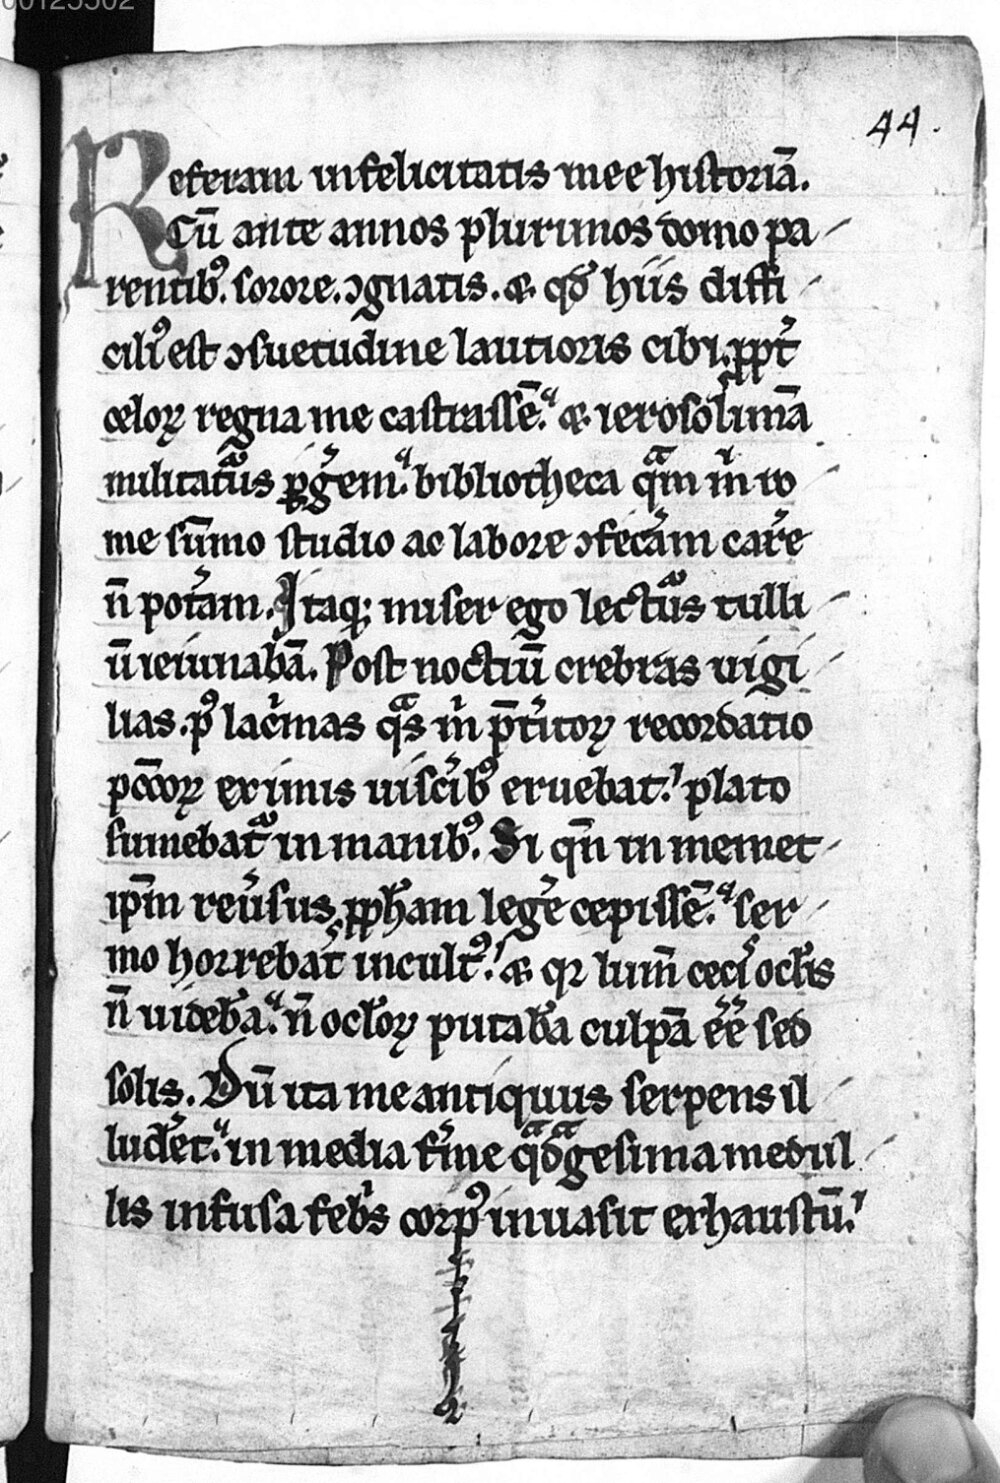 00125502
44.
Referam infelicitatis mee historiā.
Cū ante annos plurimos domo pa
rentibꝰ. sorore. ꝯgnatis. ⁊ qd̓ hiis diffi
ciliꝰ est ꝯsuetudine lautioris cibi. ꝓpt̓
celoꝝ regna me castrassē. ⁊ ierosolimā
militatuͬs ꝑg̓em. bibliotheca qᵃm m̓ ro
me sūmo studio ac labore ꝯfecam̓ car̓e
n̄ pot̓am. Itaqꝫ miser ego lectuͬs tulli
ū ieiunabā. Post noctiū crebras uigi
lias. pꝰ lac̓mas qᵃs m̓ p̄t̓itoꝝ recordatio
pccōꝝ ex imis uisc̓ibꝰ eruebat. plato
sumebatᷣ in manibꝰ. Si qn̄ in memet
ip̄m reu̓sus ꝓph̓am leg̓e cepissē. ser
mo horrebat̓ incultꝰ. ⁊ qꝛ lum̄ cecis ocl̓is
n̄ uideb̓a. n̄ ocl̓oꝝ putab̓a culpā ēē sed
solis. Dū ita me antiquus serpens il
lud̓et. in media f̓me qᵃdᵃgesima medul
lis infusa febͥs corpꝰ inuasit exhaustū.